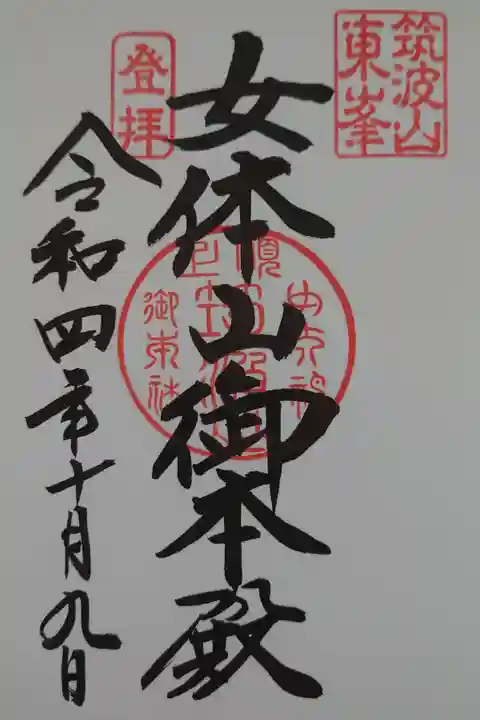 筑波山
東峯
登拝
女体山御本殿
令和四年十月九日